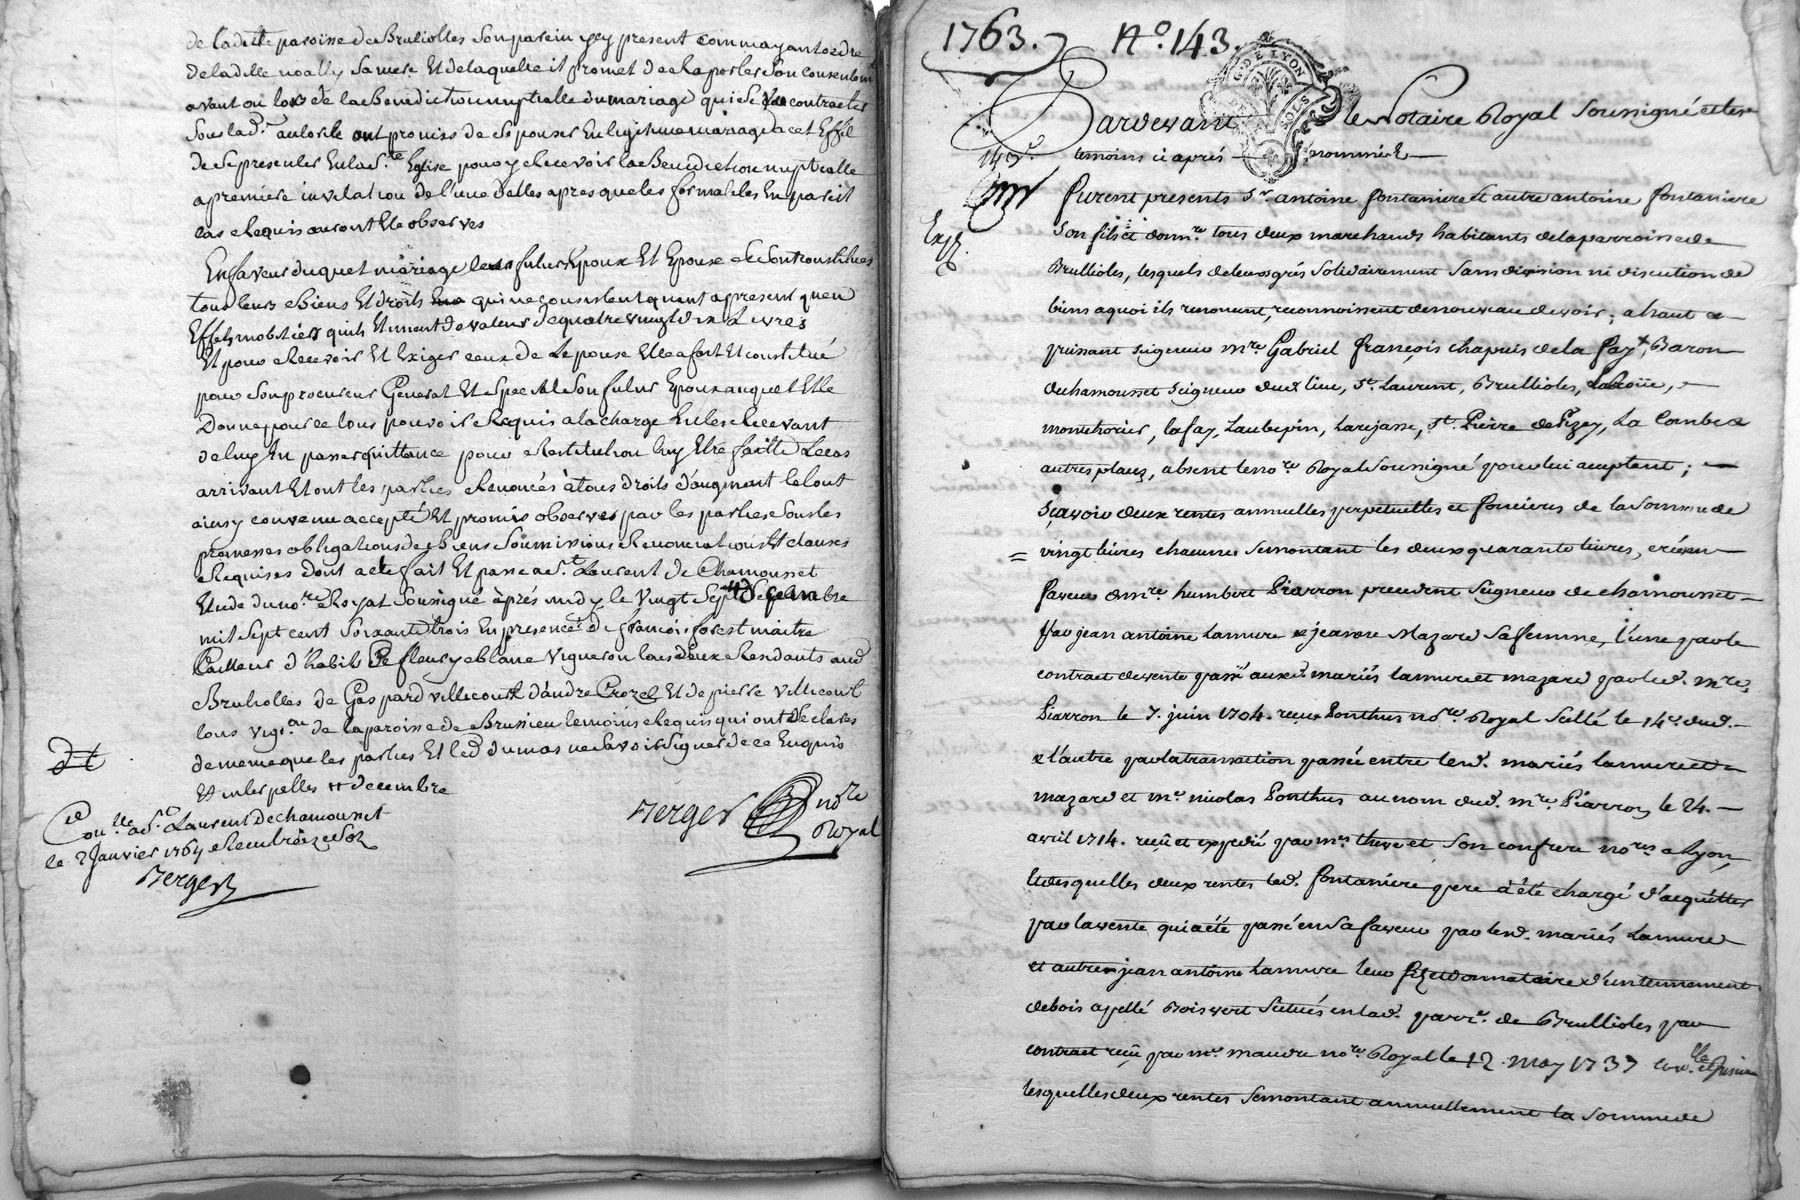 de ladette paroisse de Brulliolles son parein y cy present comme ayant ordre
de la dette noally sa mere Et de laquelle il promet de Raporter son consentemt
avant ou lors de la Benediction nuptialle du mariage qui se va contracter
sous lad. autorité ont promis de se pouser En legitime mariage a cet Effet
de se presenter En la Ste Eglise pour y Recevoir la Benediction nuptialle
a premiere invitation de l'une d'elles apres que les formalités En pareil
cas Requis auront Eté observés
En faveur duquel mariage les futurs Epoux Et Epouse se sont constitués
tous leurs Biens Et droits qui ne consistent quant a present qu'en
Effets mobiliers qu'ils Estiment de valeur de quatre vingt dix Livres
Et pour Recevoir Et Exiger ceux de L'epouse Elle a fait Et constitué
pour son procureur General Et special son futur Epoux auquel Elle
Donne pour ce tous pouvoir Requis a la charge En les Recevant
de luy En passer quittance pour Restitution luy Etre faitte Le cas
arrivant Et ont les parties Renoncés à tous droits d'augment le tout
ainsy convenu accepté Et promis observer par les parties sous les
promesses obligations de Biens soumissions Renonciations Et clauses
Requises dont acte fait Et passé a St Laurent de Chamousset
Etude du nore Royal soussigné après midy le vingt sept decembre
mil sept cent soixante trois En presence de françois forest maitre
Tailleur d'habits De fleury eblanc vigneron tous deux Residants aud.
Brulliolles de Gaspard villecourt d'andre Crozet Et de pierre villecourt
tous vigon de la paroisse de Brussieu temoins Requis qui ont Declarés
de meme que les parties Et led dumas ne savoir signer de ce Enquis
Et interpellés 11 decembre
Berger nore
Royal
Conlle a St Laurent de chamousset
le 2 Janvier 1764 Recu treize sols
Berger
1763. No. 143.
G. DE LYON
SOLS
Pardevant le Notaire Royal soussigné et les
temoins ci après nommés
143e.
Exp.
furent presents Sr. antoine fontaniere et autre antoine fontaniere
son fils et donnre. tous deux marchands habitants de la parroisse de
Brullioles, lesquels de leurs grés solidairement sans division ni discution de
biens a quoi ils renoncent, reconnoissent de nouveau devoir, a haut et
puissant seigneur mre. Gabriel françois chapuis de la fay, Baron
de chamousset seigneur dud. lieu, St. Laurent, Brullioles,
monthorier, lafay, Laubepin, Larajasse, St. Pierre de Pizey, La Combe &
autres places, absent le nore. Royal soussigné pour lui acceptant;
sçavoir deux rentes annuelles perpetuelles et foncieres de la somme de
= vingt livres chacunes se montant les deux quarante livres, créées en
faveur de mre. humbert Piarron precedent seigneur de chamousset
par jean antoine Lamure & jeanne Mazard sa femme, l'une par le
contract de vente passé auxd. mariés Lamure et mazard par led. mre.
Piarron le 7. juin 1704. reçu Ponthus nore. Royal scellé le 14e. dud.
& l'autre par la transaction passée entre lesd. mariés lamure et
mazard et me. nicolas Ponthus au nom dud. mre. Piarron le 24.
avril 1714. reçu et expedié par mes theve et son confrere nores a Lyon,
Lesdesquelles deux rentes led. fontaniere pere a été chargé d'acquitter
par la vente qui a été passé en sa faveur par lesd. mariés Lamure
et autre jean antoine Lamure leur fils et donnataire d'un tennement
de bois apellé Boisvert situés en lad. parre. de Brullioles par
contract reçu par me. mandre nore. Royal le 12. may 1737
lesquelles deux rentes se montant annuellement la somme de